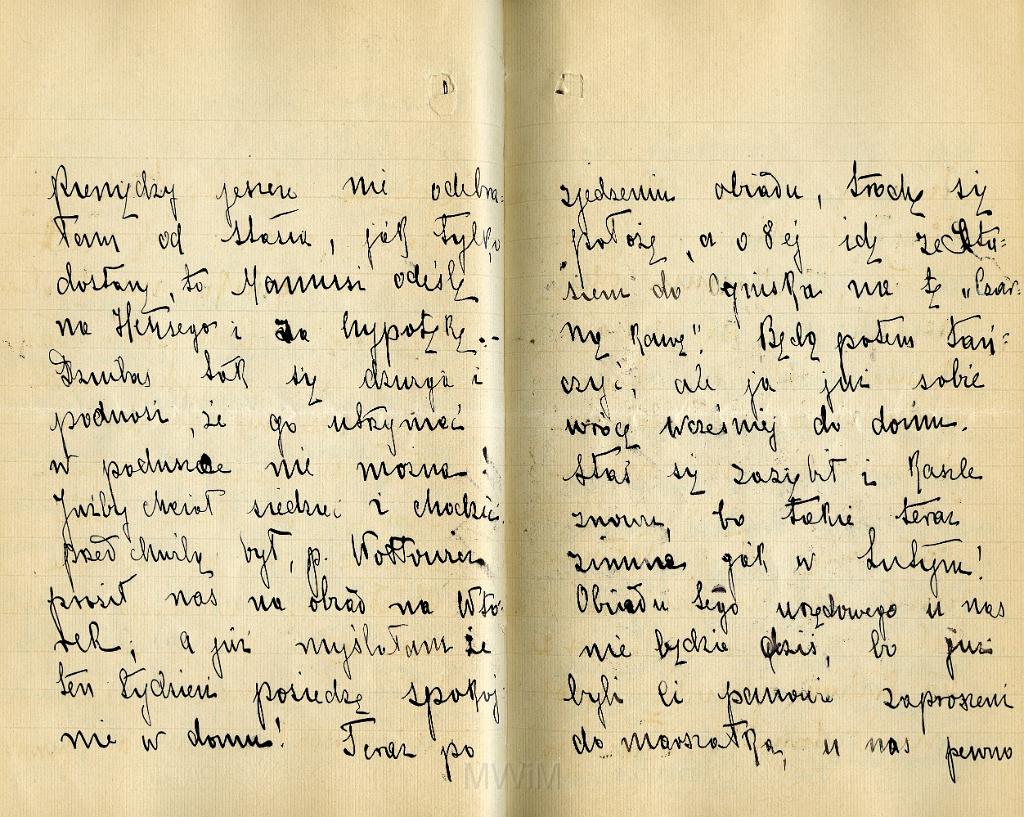 Pieniędzy jeszcze nie odebra-
łam od Stasia, jak tylko
dostanę, to Mamusi odeślę
na i za hypotekę.-
Dziubas tak się dźwiga i
podnosi, że go utrzymać
w poduszce nie można!
Jużby chciał siedzieć i chodzić.
przed chwilą był, p.
prosił nas na obiad na Wto-
rek; a już myślałam że
ten tydzień posiedzę spokoj
nie w domu! Teraz po
zjedzeniu obiadu, trochę się
położę, a o 8ej idę ze Sta-
siem do Ogniska na tę „Czar-
ną kawę". Będą potem tań-
czyć, ale ja już sobie
wrócę wcześniej do domu.
Staś się zaziębił i kaszle
znowu, bo takie teraz
zimna jak w Lutym!
Obiadu tego urzędowego u nas
nie będzie dziś, bo już
byli ci panowie zaproszeni
do marszałka, u nas pewno
MWiM